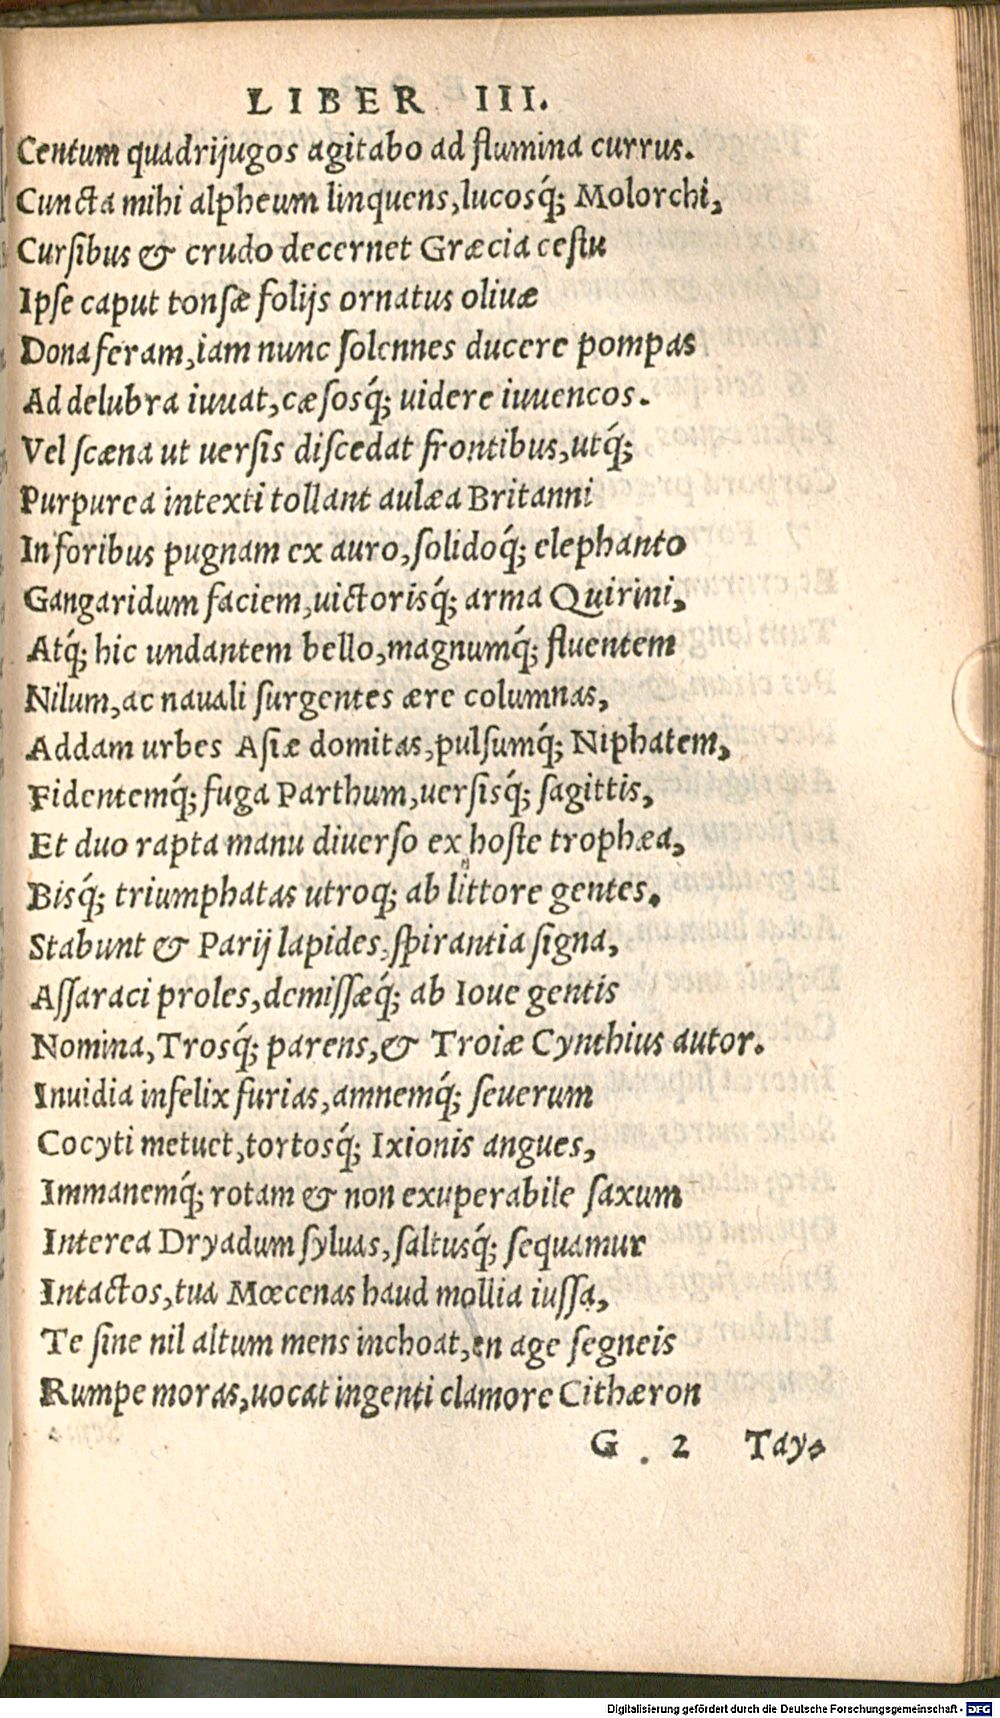 LIBER III.
Centum quadrijugos agitabo ad flumina currus.
Cuncta mihi alpheum linquens, lucosq́; Molorchi,
Cursibus & crudo decernet Græcia cestu
Ipse caput tonsæ folijs ornatus oliuæ
Dona feram, iam nunc solennes ducere pompas
Ad delubra iuuat, cæsosq́; uidere iuuencos.
Vel scæna ut uersis discedat frontibus, utq́;
Purpurea intexti tollant aulæa Britanni
In foribus pugnam ex auro, solidoq́; elephanto
Gangaridum faciem, uictorisq́; arma Quirini,
Atq́; hic undantem bello, magnumq́; fluentem
Nilum, ac nauali surgentes ære columnas,
Addam urbes Asiæ domitas, pulsumq́; Niphatem,
Fidentemq́; fuga Parthum, uersisq́; sagittis,
Et duo rapta manu diuerso ex hoste trophæa,
Bisq́; triumphatas utroq; ab littore gentes.
Stabunt & Parij lapides, spirantia signa,
Assaraci proles, demissæq́; ab Ioue gentis
Nomina, Trosq́; parens, & Troiæ Cynthius autor.
Inuidia infelix furias, amnemq́; seuerum
Cocyti metuet, tortosq́; Ixionis angues,
Immanemq́; rotam & non exuperabile saxum
Interea Dryadum syluas, saltusq́; sequamur
Intactos, tua Mœcenas haud mollia iussa,
Te sine nil altum mens inchoat, en age segneis
Rumpe moras, uocat ingenti clamore Cithæron
G 2 Tay-
Digitalisierung gefördert durch die Deutsche Forschungsgemeinschaft - DFG